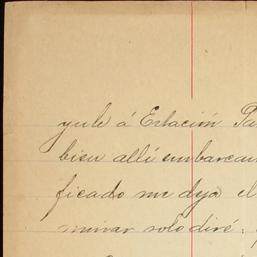 yule á Estación Pa
bien allí embarcan
ficado me deja el
minar solo diré: